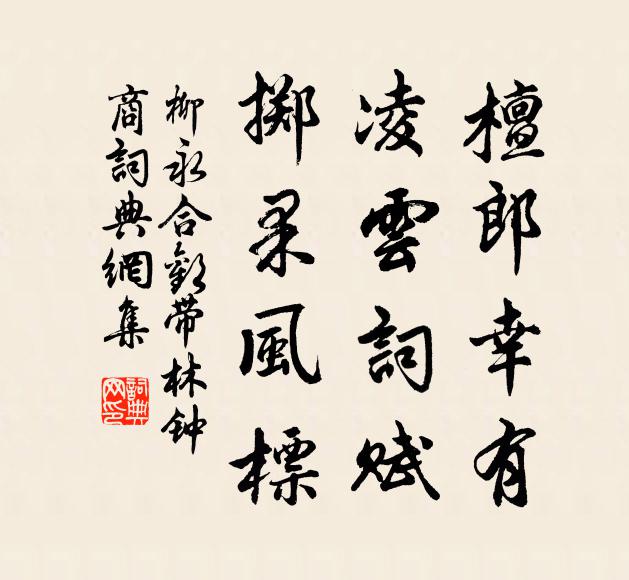 檀郎幸有
凌雲詞賦
掷果風標
柳永合歡带林钟
商詞典網集
詞典
网印